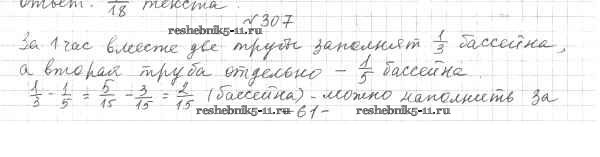 ответ. 1/18 текста.
№307
reshebnik5-11.ru
За 1 час вместе две трубы заполнят 1/3 бассейна,
а вторая труба отдельно – 1/5 бассейна.
1/3 - 1/5 = 5/15 - 3/15 = 2/15 (бассейна) - можно наполнить за
reshebnik5-11.ru -61- reshebnik5-11.ru